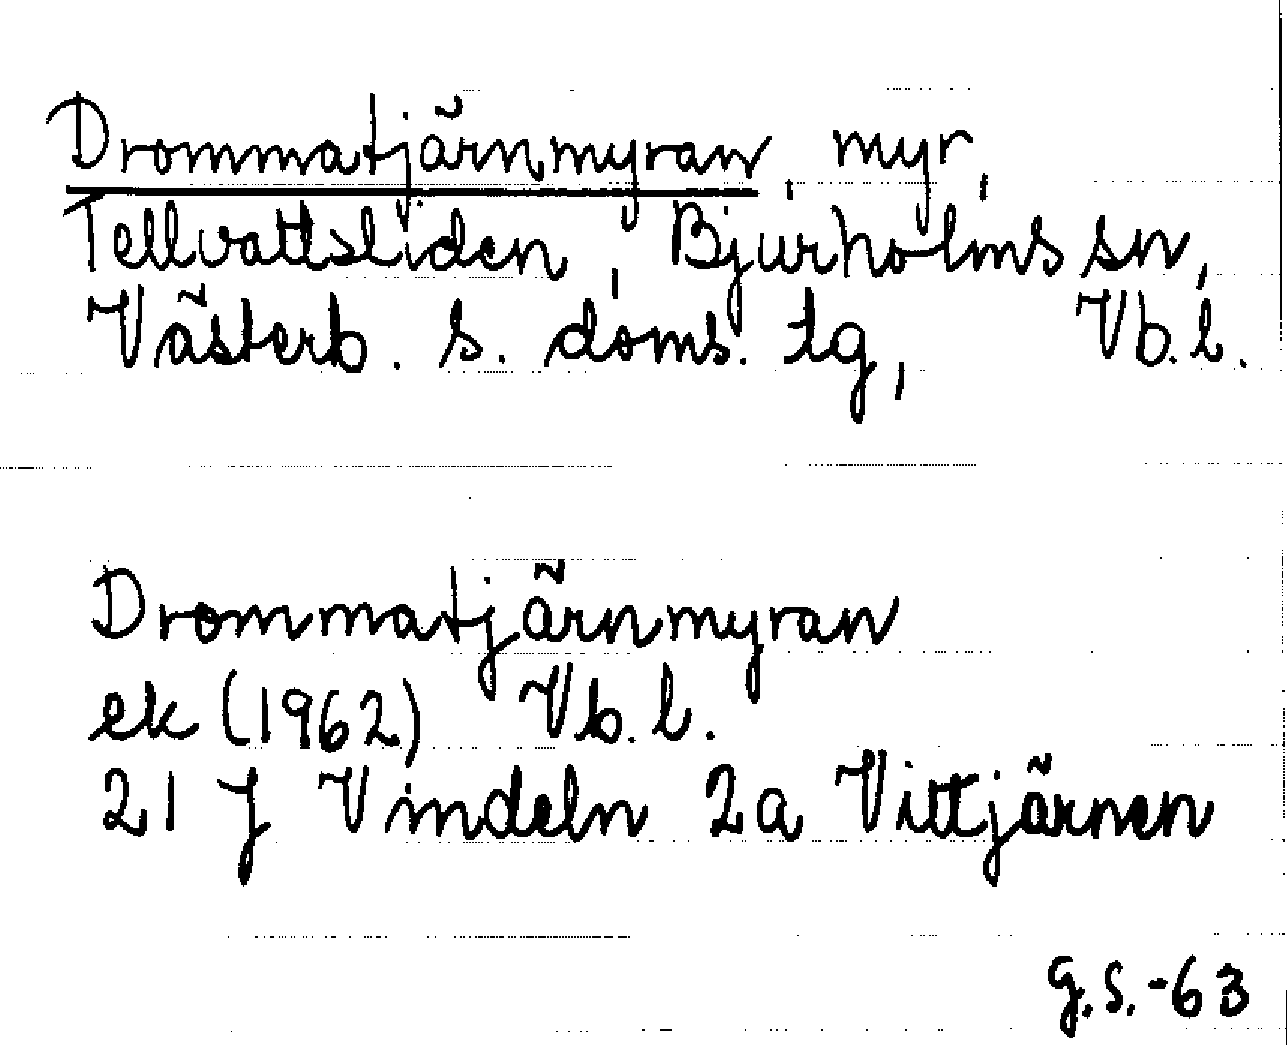 Drommatjärnmyran, myr,
Tellvattsliden, Bjurholms sn,
Västerb. s. doms. tg, Vb. l.
Drommatjärnmyran
ek (1962) Vb. l.
21 J Vindeln 2a Vittjärnen
g.s.-63